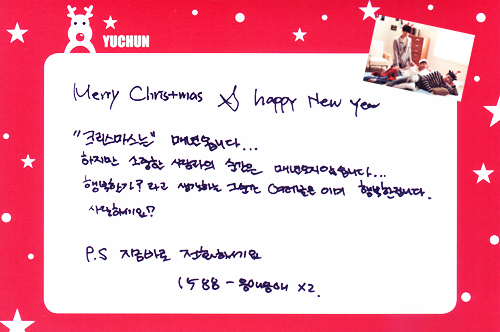 YUCHUN
Merry Christmas & happy New year
"크리스마스는" 매년옵니다...
하지만 소중한 사람과의 순간은 매년오지않습니다...
행복한가? 라고 생각하는 그순간 여러분은 이미 행복한겁니다.
사랑하세요?
P.S 지금바로 전화하세요
1588 - X2.